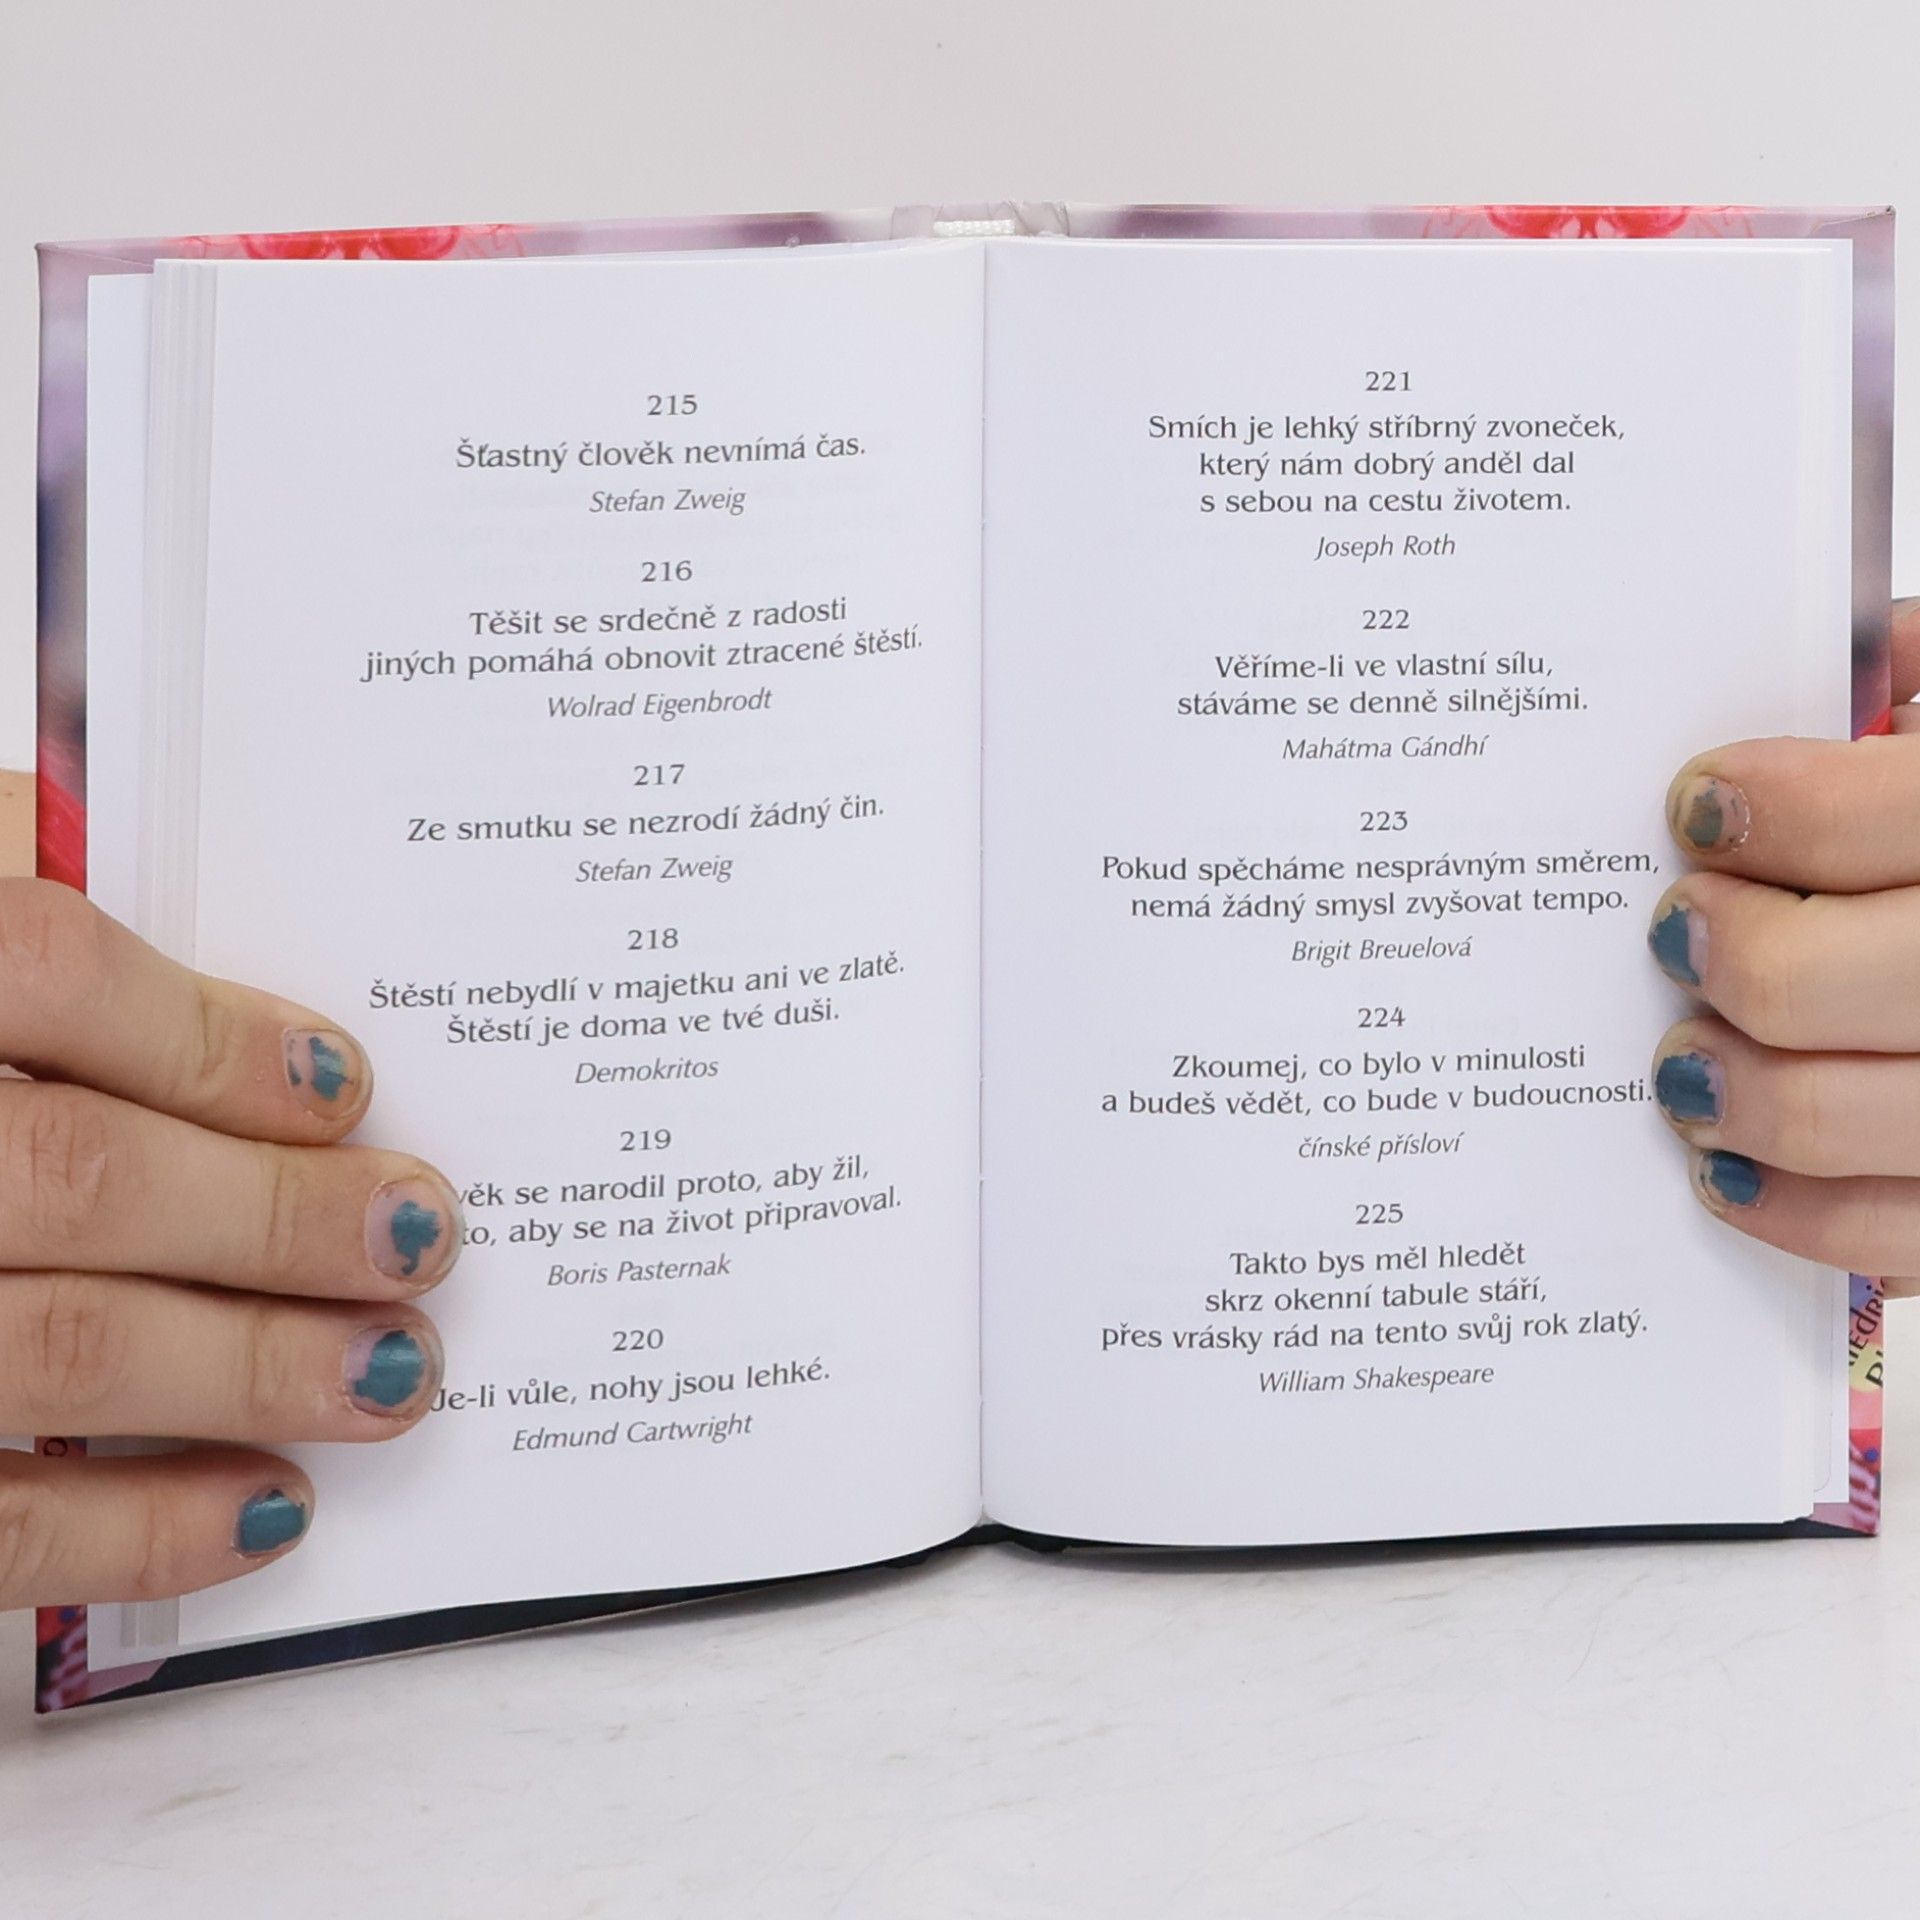 215
Šťastný člověk nevnímá čas.
Stefan Zweig
216
Těšit se srdečně z radosti
jiných pomáhá obnovit ztracené štěstí.
Wolrad Eigenbrodt
217
Ze smutku se nezrodí žádný čin.
Stefan Zweig
218
Štěstí nebydlí v majetku ani ve zlatě.
Štěstí je doma ve tvé duši.
Demokritos
219
se narodil proto, aby žil,
aby se na život připravoval.
Boris Pasternak
220
Je-li vůle, nohy jsou lehké.
Edmund Cartwright
221
Smích je lehký stříbrný zvoneček,
který nám dobrý anděl dal
s sebou na cestu životem.
Joseph Roth
222
Věříme-li ve vlastní sílu,
stáváme se denně silnějšími.
Mahátma Gándhí
223
Pokud spěcháme nesprávným směrem,
nemá žádný smysl zvyšovat tempo.
Brigit Breuelová
224
Zkoumej, co bylo v minulosti
a budeš vědět, co bude v budoucnosti.
čínské přísloví
225
Takto bys měl hledět
skrz okenní tabule stáří,
přes vrásky rád na tento svůj rok zlatý.
William Shakespeare